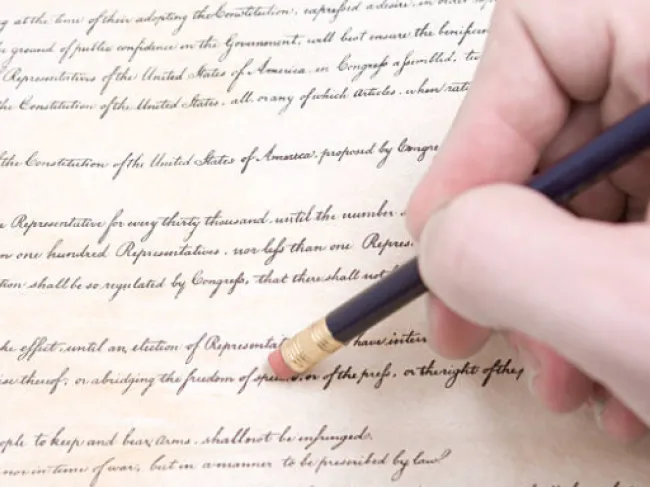 at the time of their adopting the Constitution, expressed a desire, in order
ground of public confidence in the Government, will best ensure the
Representatives of the United States of America, in Congress assembled,
the Constitution of the United States, all, or any of which Articles, when
the Constitution of the United States of America, proposed by
Representative for every thirty thousand, until the number
one hundred Representatives, nor less than one
shall be so regulated by Congress, that there shall not
effect, until an election of have
thereof; or abridging the freedom of or of the press, or the right of the
to keep and bear Arms, shall not be infringed.
nor in time of war, but in a manner to be prescribed by law.